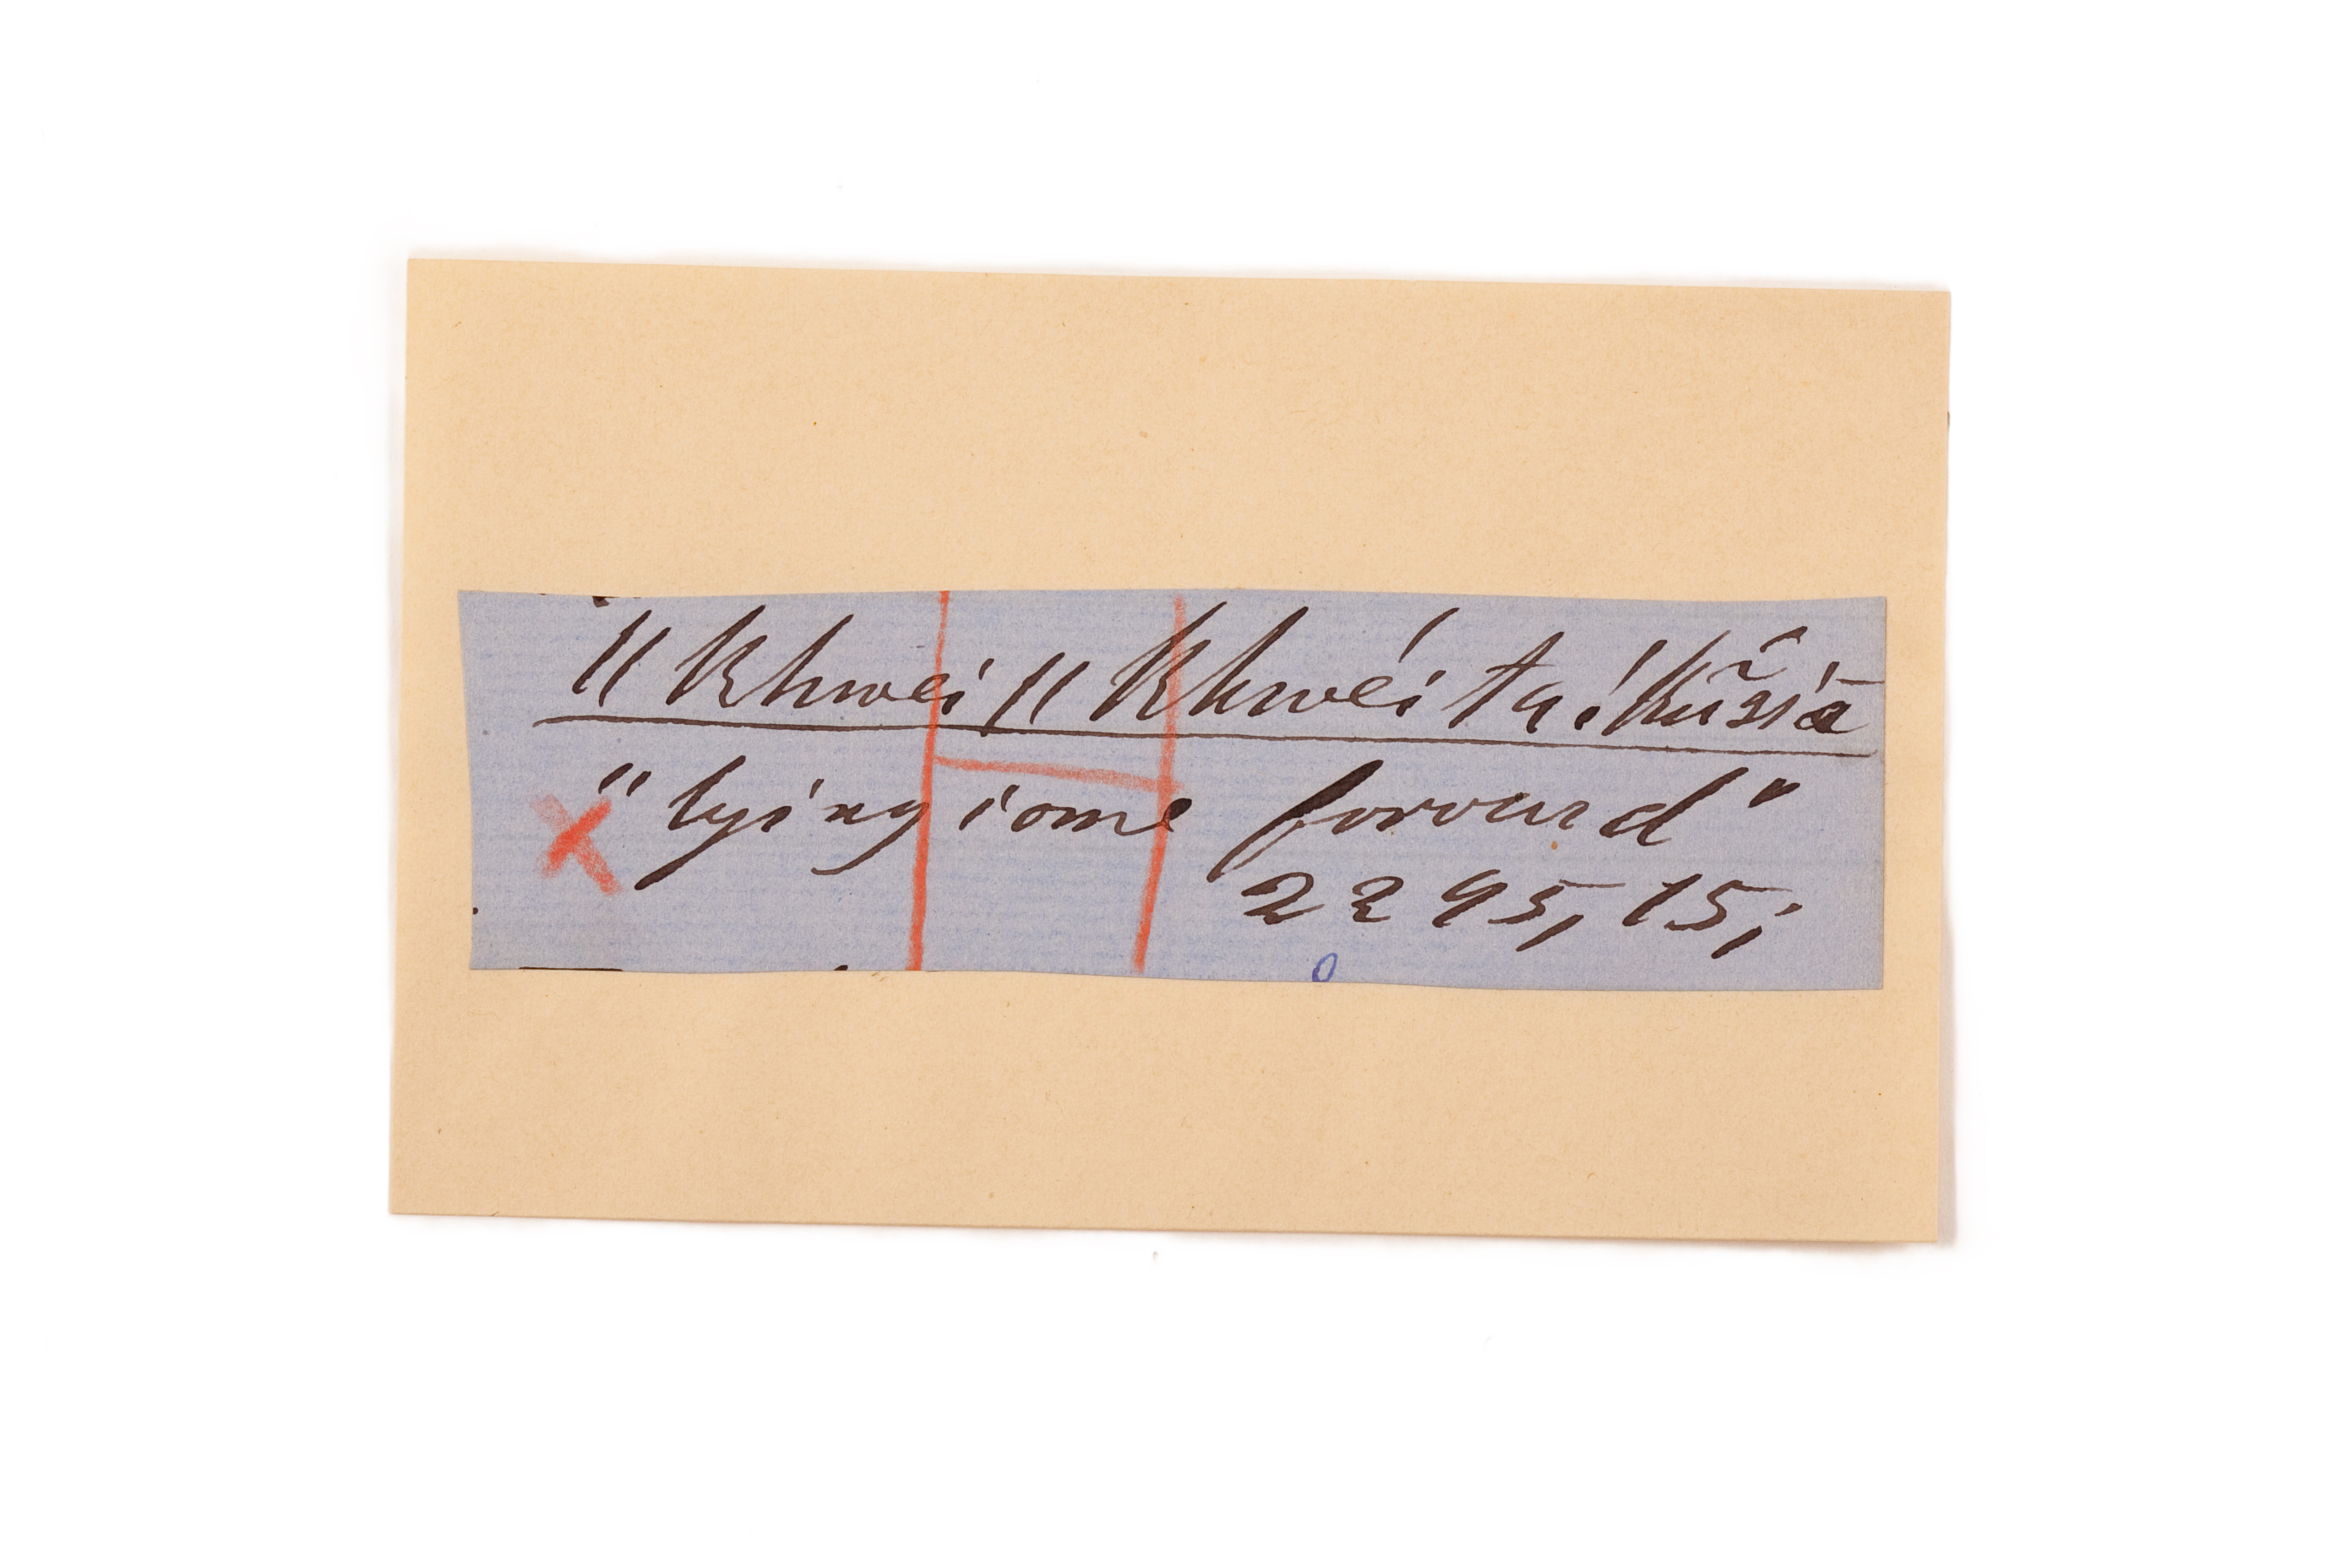 ǁkhwei ǁkhwéi ta !kŭ́siā
"lying come forward"
2295, 15;